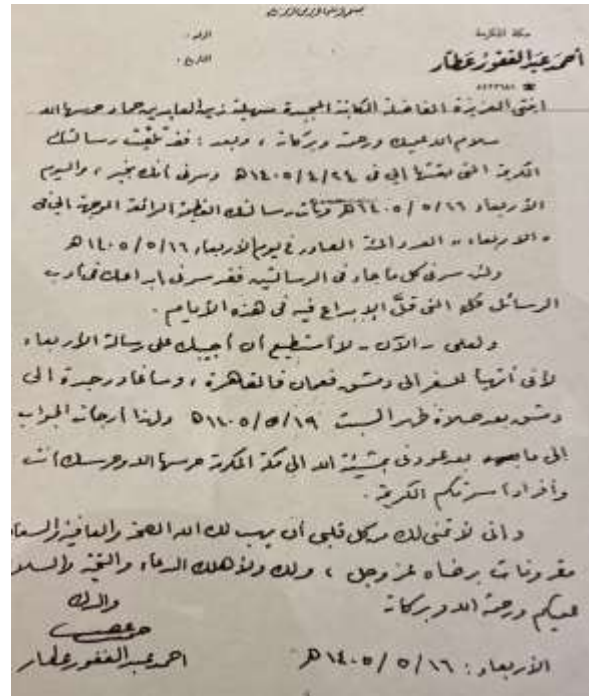 بسم الله الرحمن الرحيم
مكة المكرمة
أحمد عبد الغفور عطار
الرقم :
التاريخ :
ابنتي العزيزة الفاضلة الكاتبة المجيدة سهيلة زين العابدين حماد حرسها الله
سلام الله عليك ورحمته وبركاته ، وبعد : فقد تلقيت رسالتك
الكريمة التي بعثتها إلي في ١٤٠٥/٤/٢٤هـ وسرني أنك بخير ، واليوم
الأربعاء ١٤٠٥/٥/١٦هـ قرأت رسالتك العظيمة الرائعة الموجهة إلي في
« الأربعاء » العدد المئة الصادر في يوم الأربعاء ١٤٠٥/٥/١٦هـ
ولئن سرني كل ما جاء في الرسالتين فقد سرني إبداعك في أدب
الرسائل التي قلَّ الإبداع فيه في هذه الأيام .
ولعلي - الآن - لا أستطيع أن أجيبك على رسالة الأربعاء
لأني أتهيأ للسفر إلى دمشق فعمان فالقاهرة ، وسأغادر جدة إلى
دمشق بعد صلاة ظهر السبت ١٤٠٥/٥/١٩هـ ولهذا أرجأت الجواب
إلى ما بعد عودتي بمشيئة الله إلى مكة المكرمة حرسها الله وحرسك أنت
وأفراد أسرتكم الكريمة .
وإني لأتمنى لك من كل قلبي أن يهب لك الله الصحة والعافية والسعا
مقرونات برضاه عز وجل ، ولك ولأهلك الدعاء والتحية والسلا
عليكم ورحمة الله وبركاته
والدك
أحمد عبد الغفور عطار
الأربعاء : ١٤٠٥/٥/١٦هـ